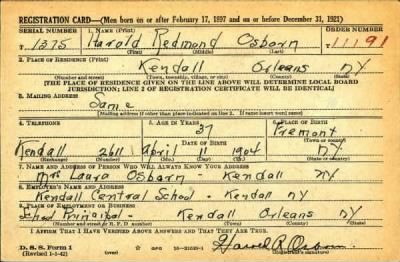 REGISTRATION CARD—(Men born on or after February 17, 1897 and on or before December 31, 1921)
SERIAL NUMBER 1. NAME (Print) ORDER NUMBER
T 1375 Harold Redmond Osborn T 11191
(First) (Middle) (Last)
2. PLACE OF RESIDENCE (Print)
Kendall Orleans NY
(Number and street) (Town, township, village, or city) (County) (State)
[THE PLACE OF RESIDENCE GIVEN ON THE LINE ABOVE WILL DETERMINE LOCAL BOARD
JURISDICTION; LINE 2 OF REGISTRATION CERTIFICATE WILL BE IDENTICAL]
3. MAILING ADDRESS
Same
[Mailing address if other than place indicated on line 2. If same insert word same]
4. TELEPHONE 5. AGE IN YEARS 6. PLACE OF BIRTH
37
DATE OF BIRTH (Town or county)
Kendall 2611 April 11 1904 NY
(Exchange) (Number) (Mo.) (Day) (Yr.) (State or country)
7. NAME AND ADDRESS OF PERSON WHO WILL ALWAYS KNOW YOUR ADDRESS
Mrs Laura Osborn - Kendall NY
8. EMPLOYER'S NAME AND ADDRESS
Kendall Central School - Kendall NY
9. PLACE OF EMPLOYMENT OR BUSINESS
School Principal - Kendall Orleans NY
(Number and street or R. F. D. number) (Town) (County) (State)
I AFFIRM THAT I HAVE VERIFIED ABOVE ANSWERS AND THAT THEY ARE TRUE.
D. S. S. Form 1
(Revised 1-1-42) (over) GPO Harold R. Osborn